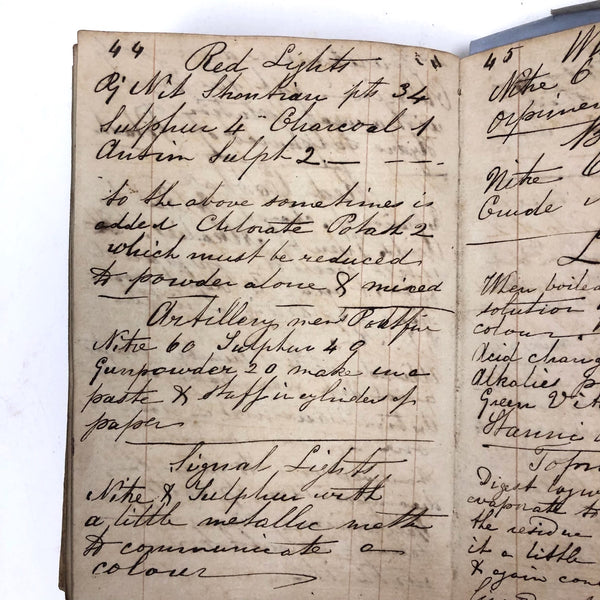 44
Red Lights
Rj Nit Strontian pts 34
Sulphur 4 " Charcoal 1
Antim Sulph 2 — - - -
to the above sometimes is
added Chlorate Potash 2
which must be reduced
to powder alone & mixed
Artillery men's Portfire
Nitre 60 Sulphur 49
Gunpowder 20 make in a
paste & stuff in cylinders of
paper
Signal Lights
Nitre & Sulphur with
a little metallic
to communicate a
colour
45
Nitre 6
Orpimen
Nitre
Crude
When boiled
solution
colour
Acid chang
Alkalies p
Green Vit
Stanni
Digest
evaporate to
the residue
it a little
& again con